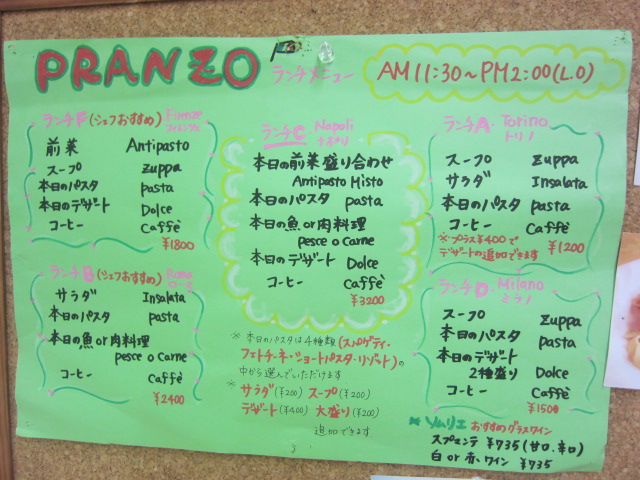 PRANZO ランチメニュー AM11:30～PM2:00(L.O)
ランチF (シェフおすすめ) Firenze
フィレンツェ
前菜 Antipasto
スープ zuppa
本日のパスタ pasta
本日のデザート Dolce
コーヒー Caffè
¥1800
ランチB (シェフおすすめ) Roma
ローマ
サラダ Insalata
本日のパスタ pasta
本日の魚or肉料理
pesce o Carne
コーヒー Caffè
¥2400
ランチC Napoli
ナポリ
本日の前菜盛り合わせ
Antipasto Misto
本日のパスタ pasta
本日の魚or肉料理
pesce o Carne
本日のデザート Dolce
コーヒー Caffè
¥3200
※本日のパスタは4種類(スパゲティ・
フェトチーネ・ショートパスタ・リゾート)の
中から選んでいただけます
※サラダ(¥200) スープ(¥200)
デザート(¥400) 大盛り(¥200)
追加できます
ランチA Torino
トリノ
スープ zuppa
サラダ Insalata
本日のパスタ pasta
コーヒー Caffè
※プラス¥400で
デザートの追加できます
¥1200
ランチD Milano
ミラノ
スープ zuppa
本日のパスタ pasta
本日のデザート
2種盛り Dolce
コーヒー Caffè
¥1500
※ソムリエおすすめグラスワイン
スプマンテ ¥735(甘口.辛口)
白or赤ワイン ¥735